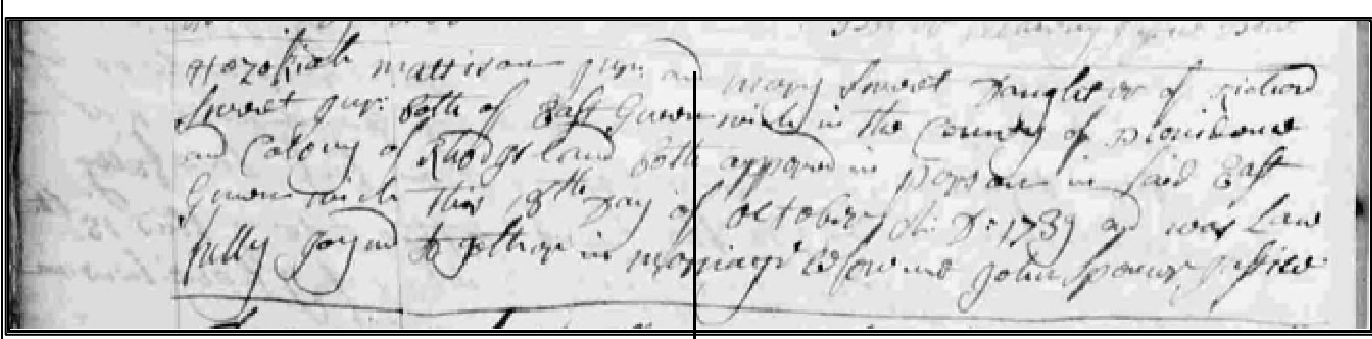 Hezekiah mattison Jur: and mary Sweet Daughter of
Sweet Jur: both of East Greenwich in the County of Providence
and Colony of Rhod Island both appeared in Person in said East
Greenwich this 18th Day of October A: D: 1739 and was Law
fully Joyned together in marriage before me John Spencer Justice